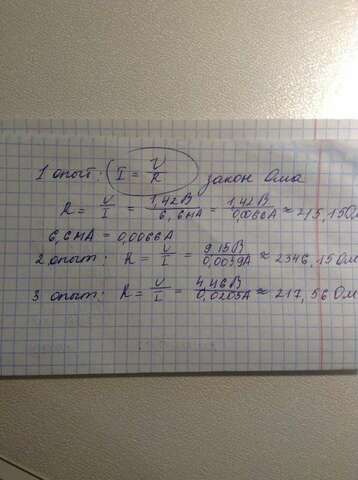 1 опыт: I = U/R закон Ома
R = U/I = 1,42В/6,6мА = 1,42В/0,0066А ≈ 215,15Ом
6,6мА = 0,0066А
2 опыт: R = U/I = 9,15В/0,0039А ≈ 2346,15Ом
3 опыт: R = U/I = 4,46В/0,0205А ≈ 217,56Ом